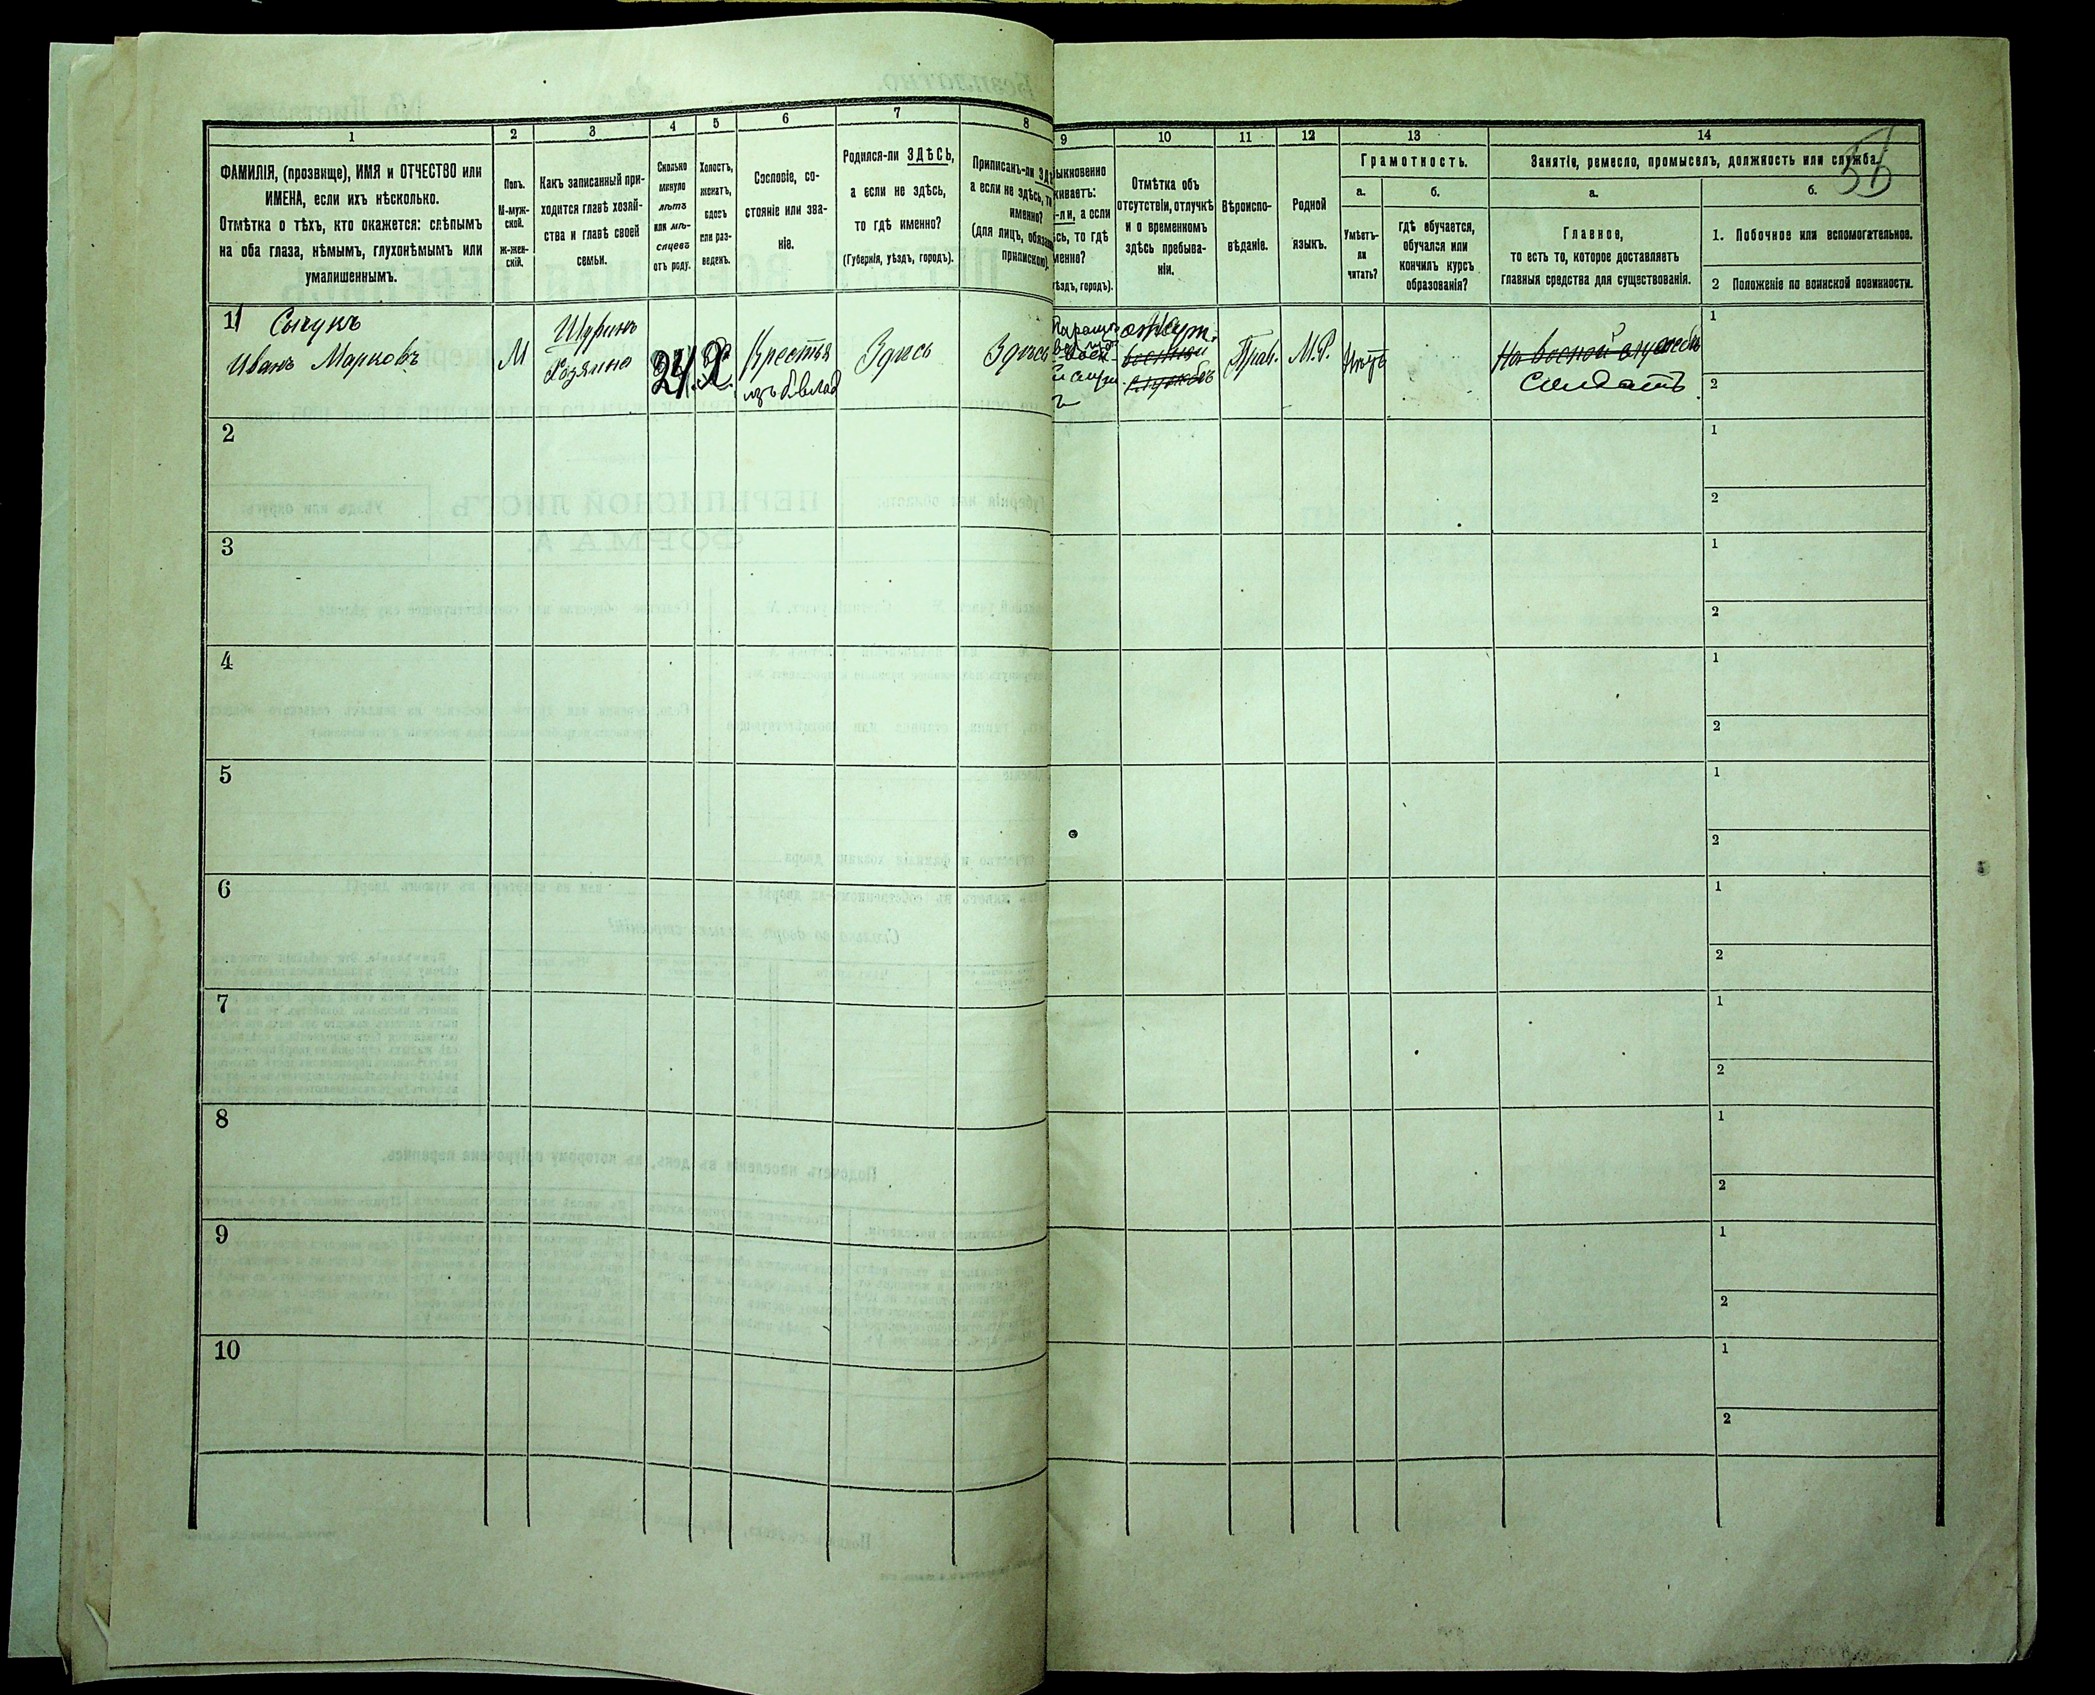 1
ФАМИЛІЯ, (прозвище), ИМЯ и ОТЧЕСТВО или
ИМЕНА, если ихъ нѣсколько.
Отмѣтка о тѣхъ, кто окажется: слѣпымъ
на оба глаза, нѣмымъ, глухонѣмымъ или
умалишеннымъ.
2
Полъ.
М-муж-
ской.
Ж-жен-
скій.
3
Какъ записанный при-
ходится главѣ хозяй-
ства и главѣ своей
семьи.
4
Сколько
минуло
лѣтъ
или мѣ-
сяцевъ
отъ роду.
5
Холостъ,
женатъ,
вдовъ
или раз-
веденъ.
6
Сословіе, со-
стояніе или зва-
ніе.
7
Родился-ли ЗДѢСЬ,
а если не здѣсь,
то гдѣ именно?
(Губернія, уѣздъ, городъ).
8
Приписанъ-ли ЗДѢ
а если не здѣсь, то
именно?
(для лицъ, обязан
припискою).
9
ыкновенно
живаетъ:
-ли, а если
сь, то гдѣ
менно?
ѣздъ, городъ).
10
Отмѣтка объ
отсутствіи, отлучкѣ
и о временномъ
здѣсь пребыва-
ніи.
11
Вѣроиспо-
вѣданіе.
12
Родной
языкъ.
13
Грамотность.
а.
Умѣетъ-
ли
читать?
б.
гдѣ обучается,
обучался или
кончилъ курсъ
образованія?
14
Занятіе, ремесло, промыселъ, должность или служба.
а.
Главное,
то есть то, которое доставляетъ
главныя средства для существованія.
б.
1. Побочное или вспомогательное.
2 Положеніе по воинской повинности.
1
Сычукъ
Иванъ Марковъ
М
Шуринъ
Хозяина
24
Х.
Крестья
изъ б. влад
Здѣсь
Здѣсь
отсут.
военной
службѣ
Прав.
М.Р.
Нѣтъ
На военой службѣ
Солдатъ
1
2
2
1
2
3
1
2
4
1
2
5
1
2
6
1
2
7
1
2
8
1
2
9
1
2
10
1
2